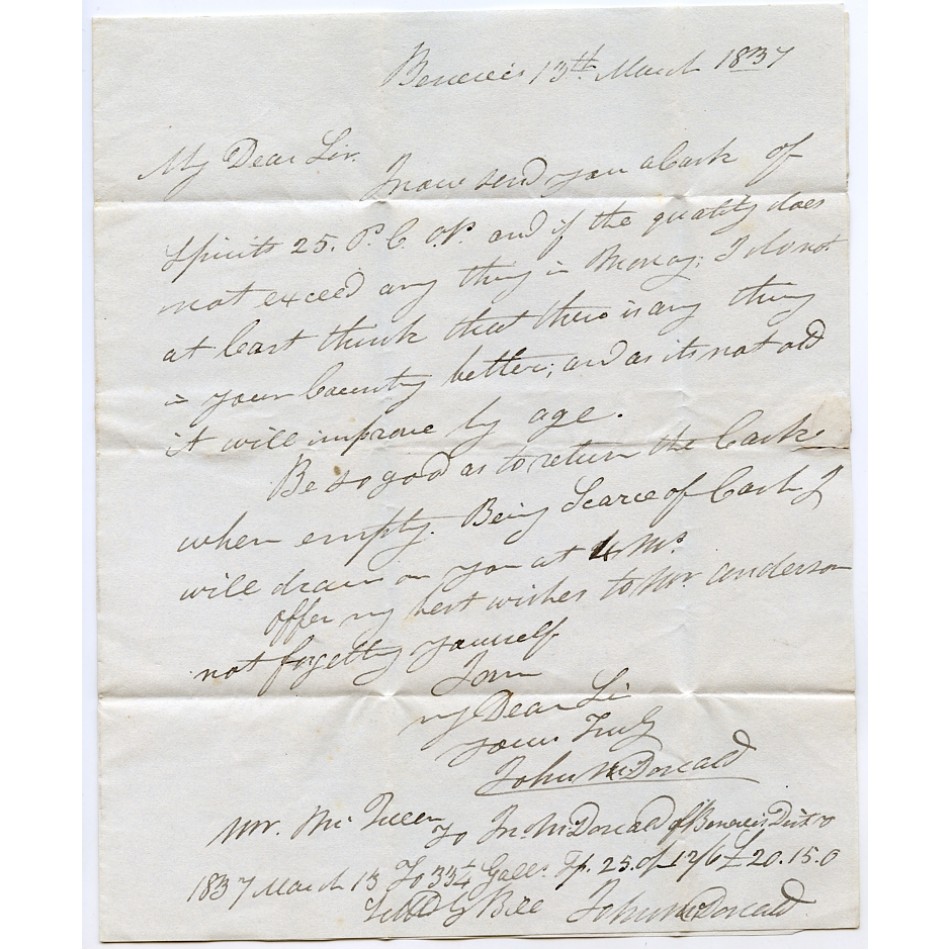 Benevis 13th March 1837
My Dear Sir.
I now send you a Cask of
Spirits 25. P. C. OP. and if the quality does
not exceed any thing in Moray; I do not
at least think that there is any thing
in your Country better; and as its not old
it will improve by age.
Be so good as to return the Cask
when empty. Being Scarce of Cash I
will draw on you at 4 Ms.
Offer my best wishes to Mr. Anderson
not forgetting yourself
I am
my Dear Sir
yours Truly
John McDonald
Mr. McQueen
To Jn. McDonald of Benevis Dist
1837 March 13 To 33¼ Galls. Sp. 25. op 12/6 £20.15.0
Settled By Bill John McDonald